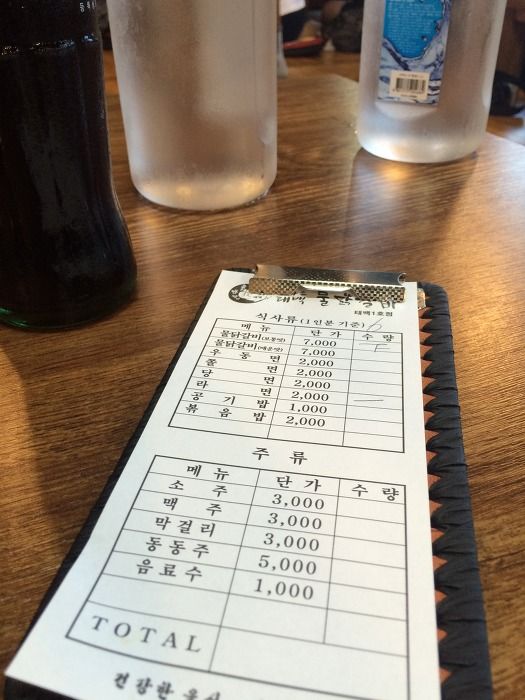 태백 물닭갈비
태백1호점
식사류 (1인분 기준)
메 뉴 단 가 수 량
물닭갈비(보통맛) 7,000
물닭갈비(매운맛) 7,000
우 동 면 2,000
쫄 면 2,000
당 면 2,000
라 면 2,000
공 기 밥 1,000
볶 음 밥 2,000
주 류
메 뉴 단 가 수 량
소 주 3,000
맥 주 3,000
막걸리 3,000
동동주 5,000
음료수 1,000
TOTAL
건강한 음식